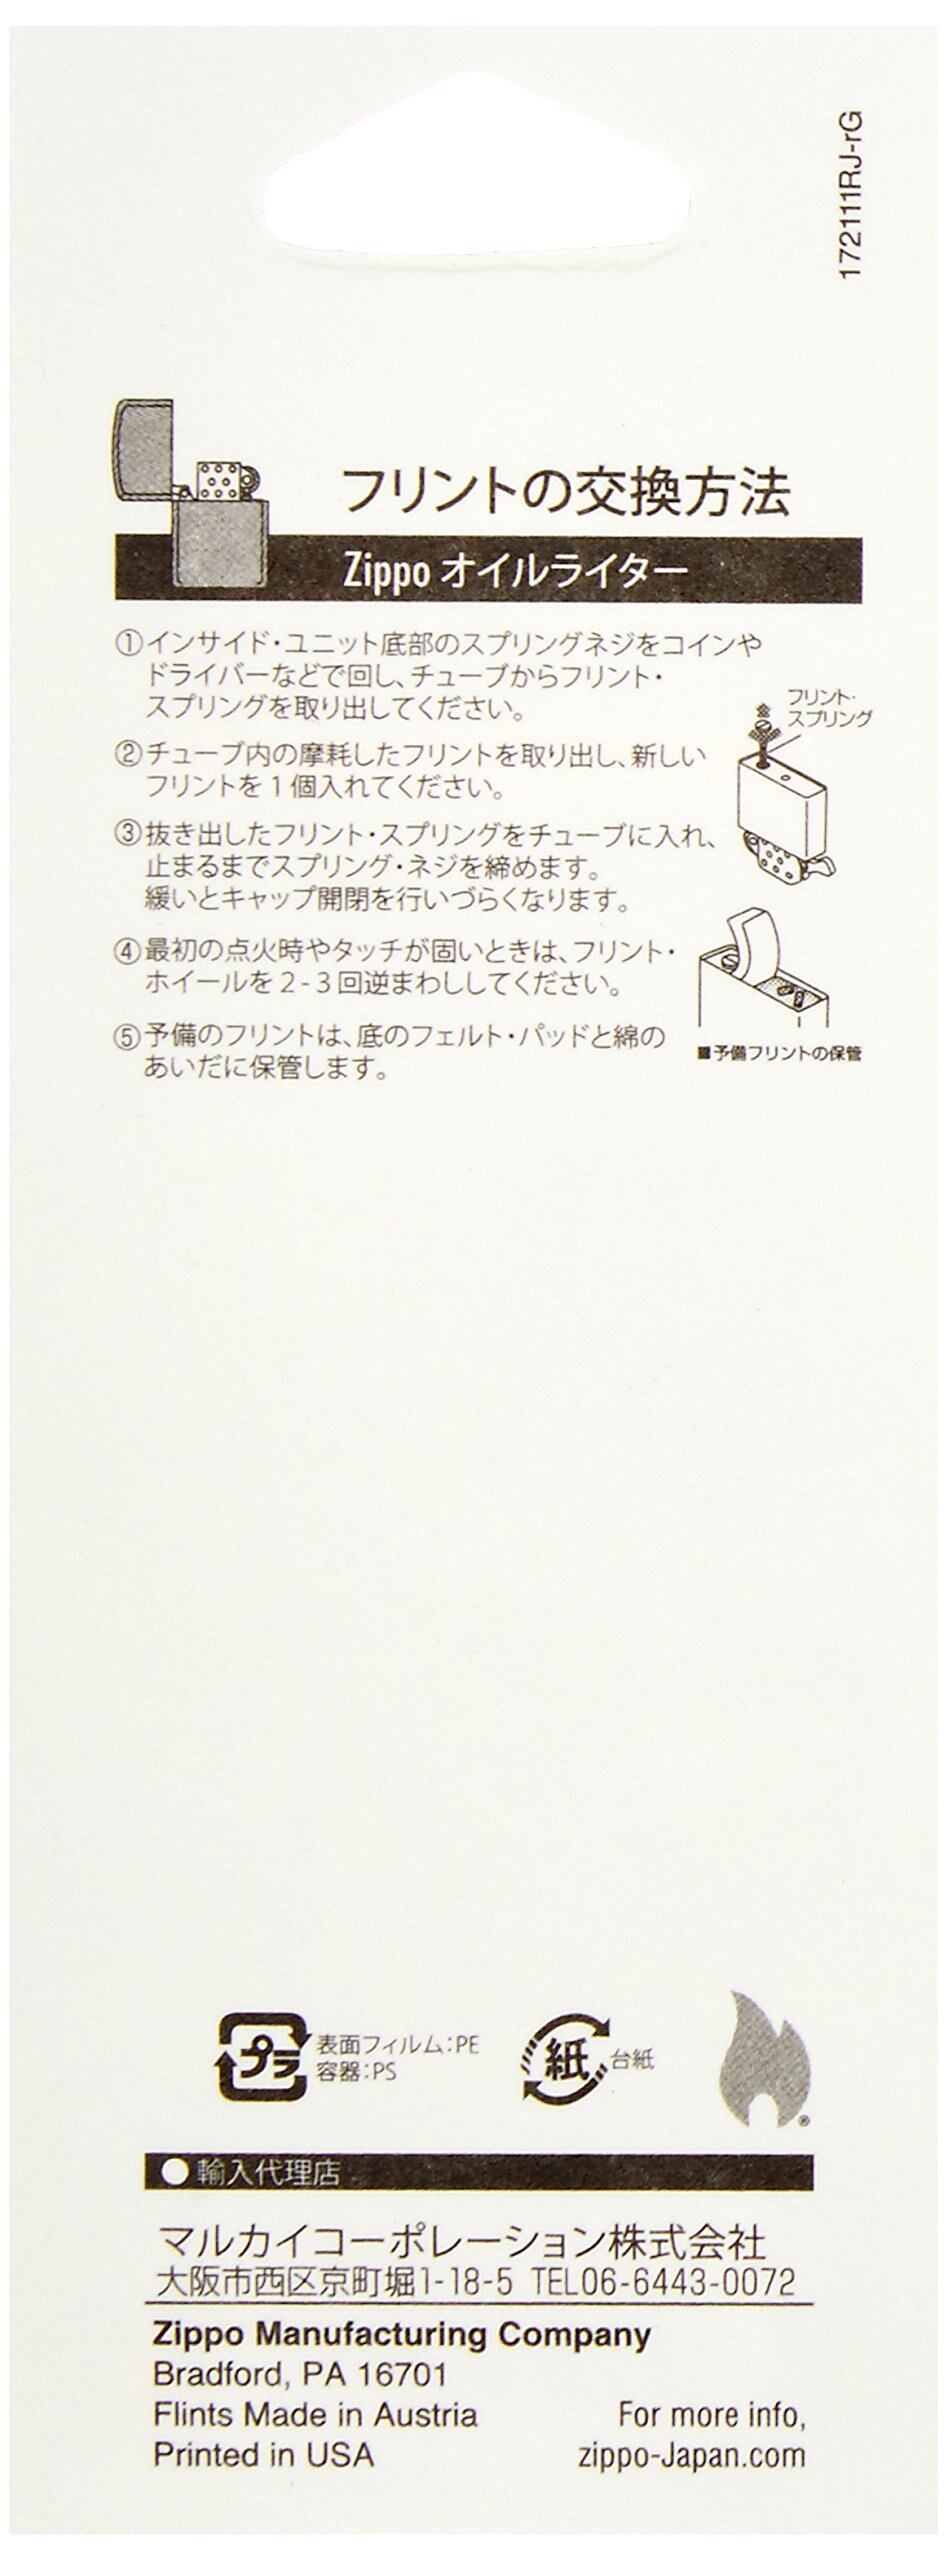 172111RJ-rG
フリントの交換方法
Zippo オイルライター
①インサイド・ユニット底部のスプリングネジをコインや
ドライバーなどで回し、チューブからフリント・
スプリングを取り出してください。
フリント・
スプリング
②チューブ内の摩耗したフリントを取り出し、新しい
フリントを1個入れてください。
③抜き出したフリント・スプリングをチューブに入れ、
止まるまでスプリング・ネジを締めます。
緩いとキャップ開閉を行いづらくなります。
④最初の点火時やタッチが固いときは、フリント・
ホイールを2-3回逆まわししてください。
⑤予備のフリントは、底のフェルト・パッドと綿の
あいだに保管します。
■予備フリントの保管
プラ
表面フィルム:PE
容器:PS
紙
台紙
®
●輸入代理店
マルカイコーポレーション株式会社
大阪市西区京町堀1-18-5 TEL06-6443-0072
Zippo Manufacturing Company
Bradford, PA 16701
Flints Made in Austria
Printed in USA
For more info,
zippo-Japan.com